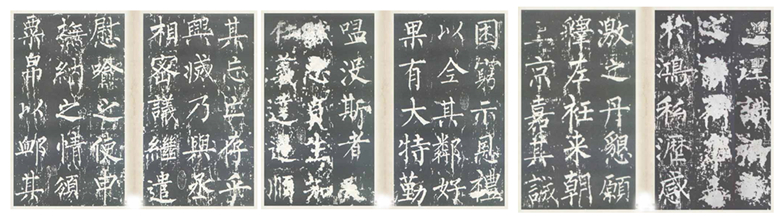 其忘亡存乎
興滅乃與丞
相密議繼遣
慰喻之使申
撫納之情頒
粟帛以卹其
困窮示恩禮
以全其鄰好
果有大特勤
嗢没斯者
忠貞生知
仁義達逆順
之理識
之心
於鴻私瀝感
激之丹懇願
釋左衽来朝
上京嘉其誠